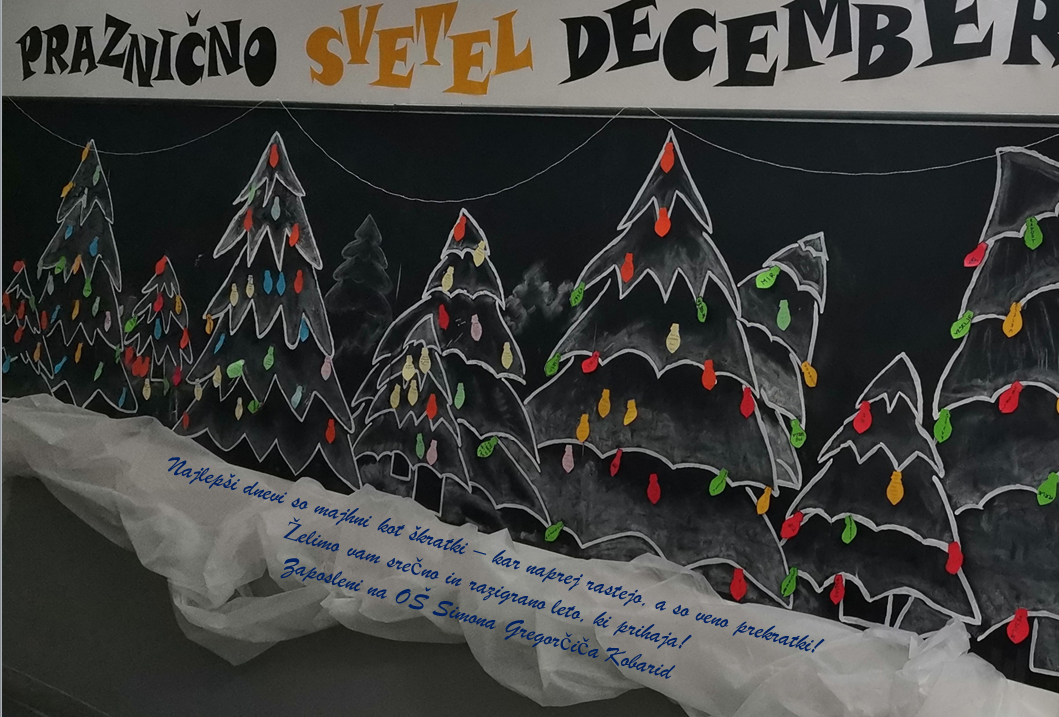 PRAZNIČNO SVETEL DECEMBER
Najlepši dnevi so majhni kot škratki – kar naprej rastejo, a so veno prekratki!
Želimo vam srečno in razigrano leto, ki prihaja!
Zaposleni na OŠ Simona Gregorčiča Kobarid